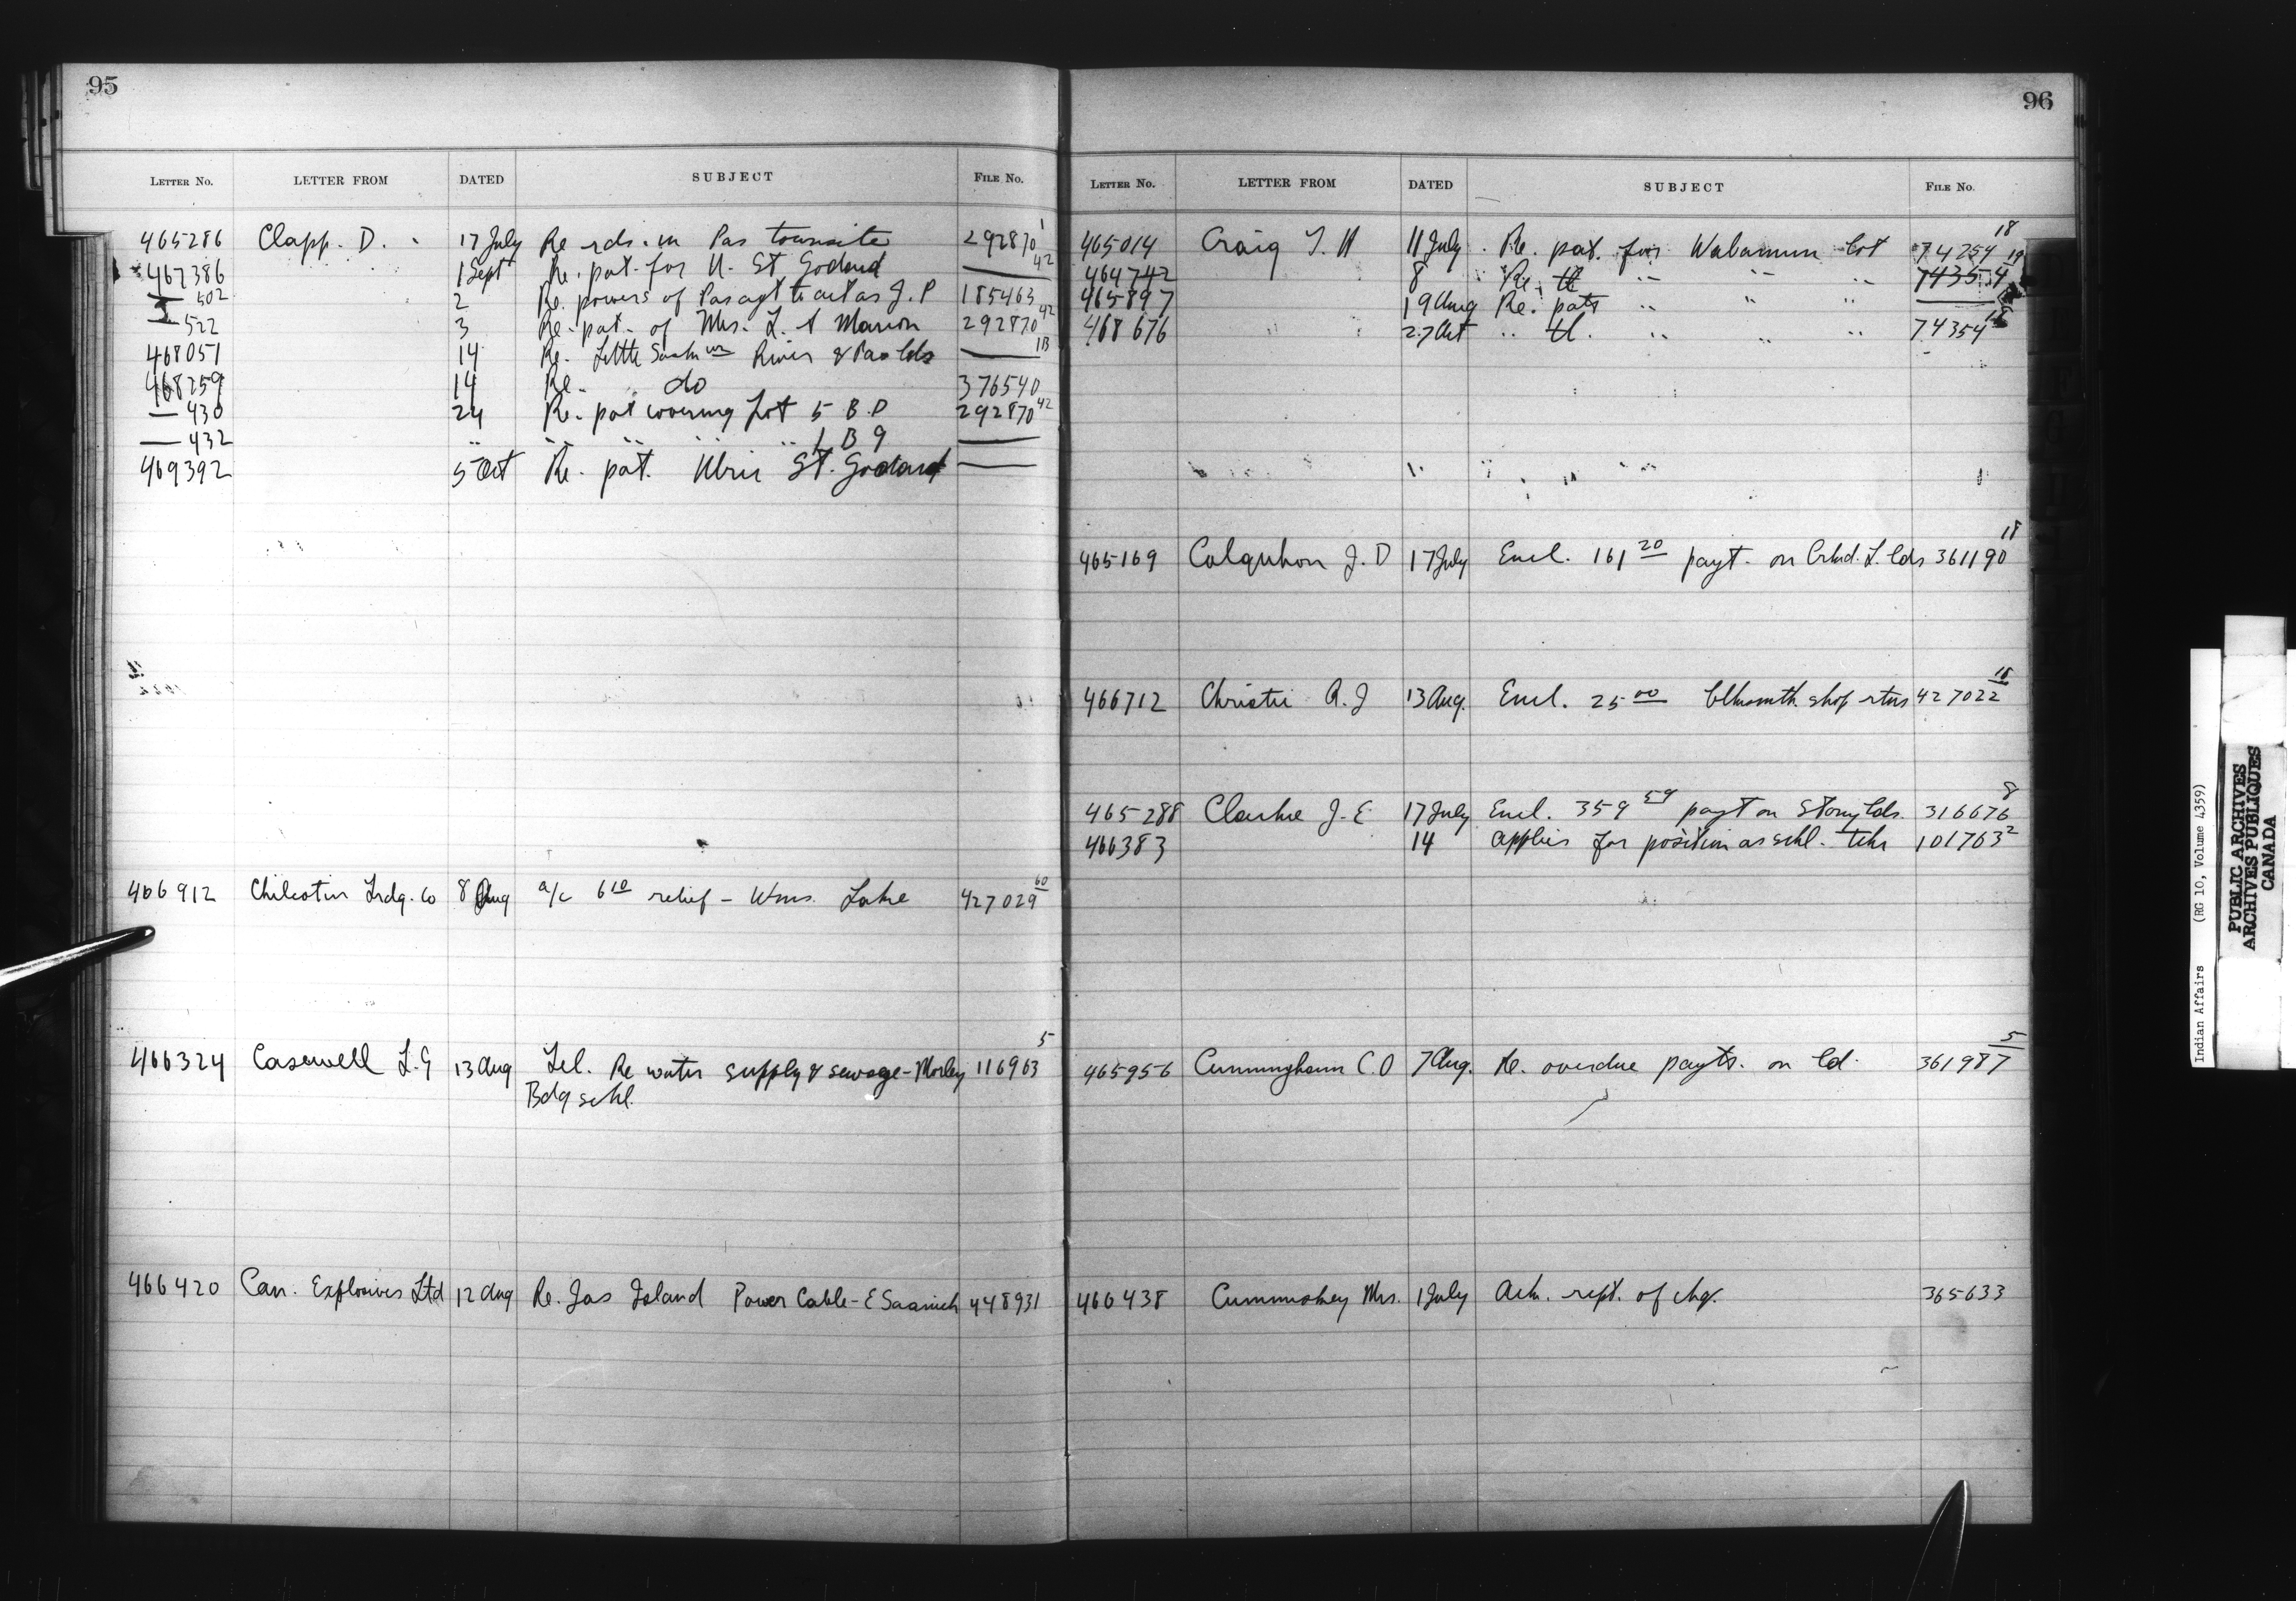 95
LETTER NO. LETTER FROM DATED SUBJECT FILE NO.
465286 Clapp. D. 17 July Re rds. in Pas townsite 292870 1
467386 1 Sept Re. pat. for U. St Godard — 42
— 502 2 Re. powers of Pas agt to act as J. P 185463
— 522 3 Re. pat. of Mrs. L. A Marion 292870 42
468051 14 Re. Little Sask River & Pas lds — 1B
468259 14 Re. do 376540
— 430 24 Re. pat covering Lot 5 B. D 292870 42
— 432 " " " " " 1 B 9 —
469392 5 Oct Re. pat. Ulric St. Godard —
466912 Chilcotin Trdg. Co 8 Aug a/c 6 10 relief - Wms. Lake 427029 60
466324 Casewell L. G 13 Aug Tel. Re water supply & sewage - Morley 116963 5
Bdg schl.
466420 Can. Explosives Ltd 12 Aug Re. Jas Island Power Cable - E Saanich 448931
96
LETTER NO. LETTER FROM DATED SUBJECT FILE NO.
465014 Craig T. H 11 July Re. pat. for Wabamun lot 74254 18
464742 8 Re. tl " " " 74354 19
465897 19 Aug Re. pats " " " —
468676 27 Oct " tl. " " " 74354 18
465169 Colquhon J. D 17 July Encl. 161 20 payt. on Crkd. L. lds 361190 18
466712 Christie A. J 13 Aug. Encl. 25 00 blksmth. shop rtns 427022 18
465288 Clarke J. E 17 July Encl. 359 59 payt on Stony lds. 316676 8
466383 14 Applies for position as schl. tchr 101763 2
465956 Cunningham C. O 7 Aug. Re. overdue payts. on ld. 361987 5
466438 Mrs. 1 July Ack. rept. of chq. 365633
Indian Affairs (RG 10, Volume 4359)
PUBLIC ARCHIVES
ARCHIVES PUBLIQUES
CANADA